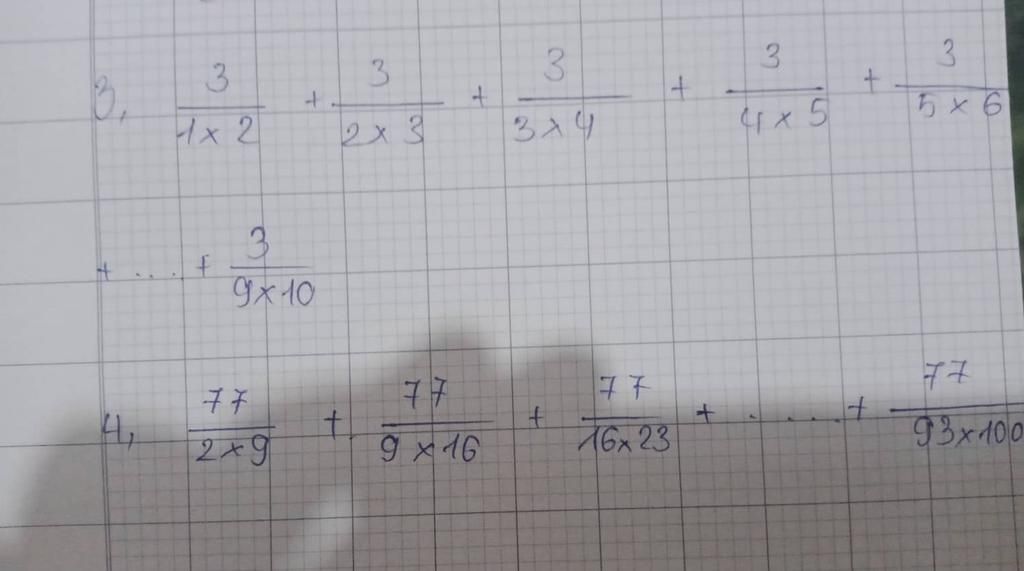 3, 3/1x2 + 3/2x3 + 3/3x4 + 3/4x5 + 3/5x6
+ .... + 3/9x10
4, 77/2x9 + 77/9x16 + 77/16x23 + ..... + 77/93x100